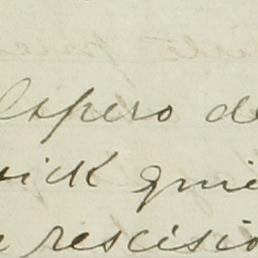 Espero de
wick quie
rescisio